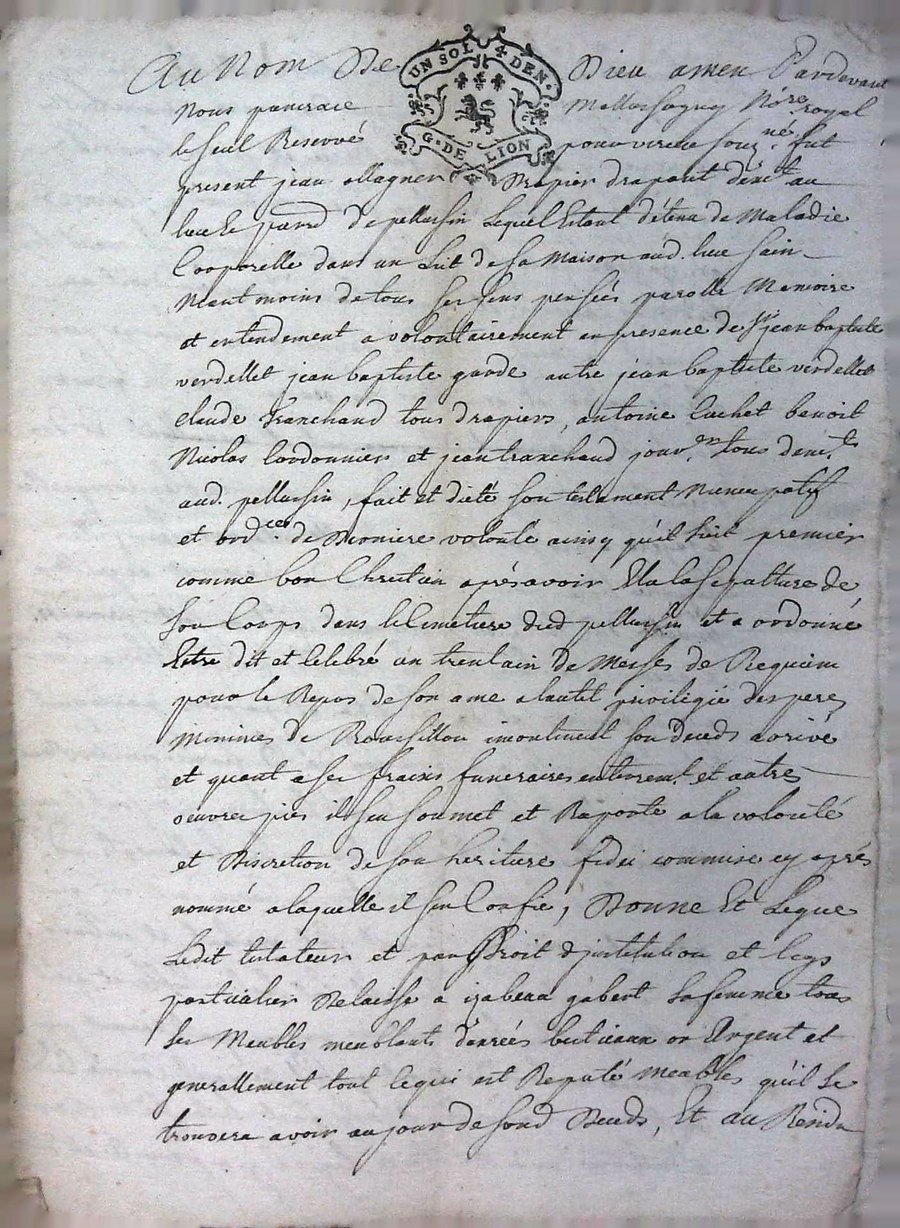 UN SOL 4 DEN.
G. DE LION
Au Nom De Dieu amen Pardevant
Nous pancrace Mellossagny No.re royal
le seul Reservé pour vireu souz.né fut
present jean allagner Drapier drapant dem.t au
lieu Le parrd De pellussin Lequel Estant détenu de Maladie
Corporelle dans un Lit de sa maison aud. lieu sain
Neantmoins de tous ses sens pensées parolle Memoire
et entendement a volontairement en presence de Sr jean baptiste
verdellet jean baptiste garde autre jean baptiste verdellet
claude tranchand tous drapiers, antoine Cuchet benoit
Nicolas Cordonniers et jean tranchand jour.er tous dem.ts
aud. pellussin, fait et dicté son testament Nuncupatif
et ord.ce de Derniere volonté ainsy qu'il suit premier
comme bon Chrestien aprés avoir Elu la sepulture de
son Corps dans le Cimetiere dud pellussin et a ordonné
Estre dit et Celebré un trentain de Messes de Requiem
pour le Repos de son ame a lautel privilegié des peres
minimes de Roussillon incontinent son deceds arrivé
et quant a ses fraix funeraires enterrem.t et autres
oeuvres pies il s'en soumet et Raporte a la volonté
et Discretion de son heritiere fidei commise cy aprés
nommé a laquelle il s'en Confie, Donne Et Legue
Ledit testateur et par Droit d'institution et legs
particulier Delaisse a izabeau gabert sa femme tous
ses Meubles meublants danrées bestieaux or Argent et
generallement tout ce qui est Reputé meubles qu'il se
trouvera avoir au jour de sond Deceds, Et au Residu